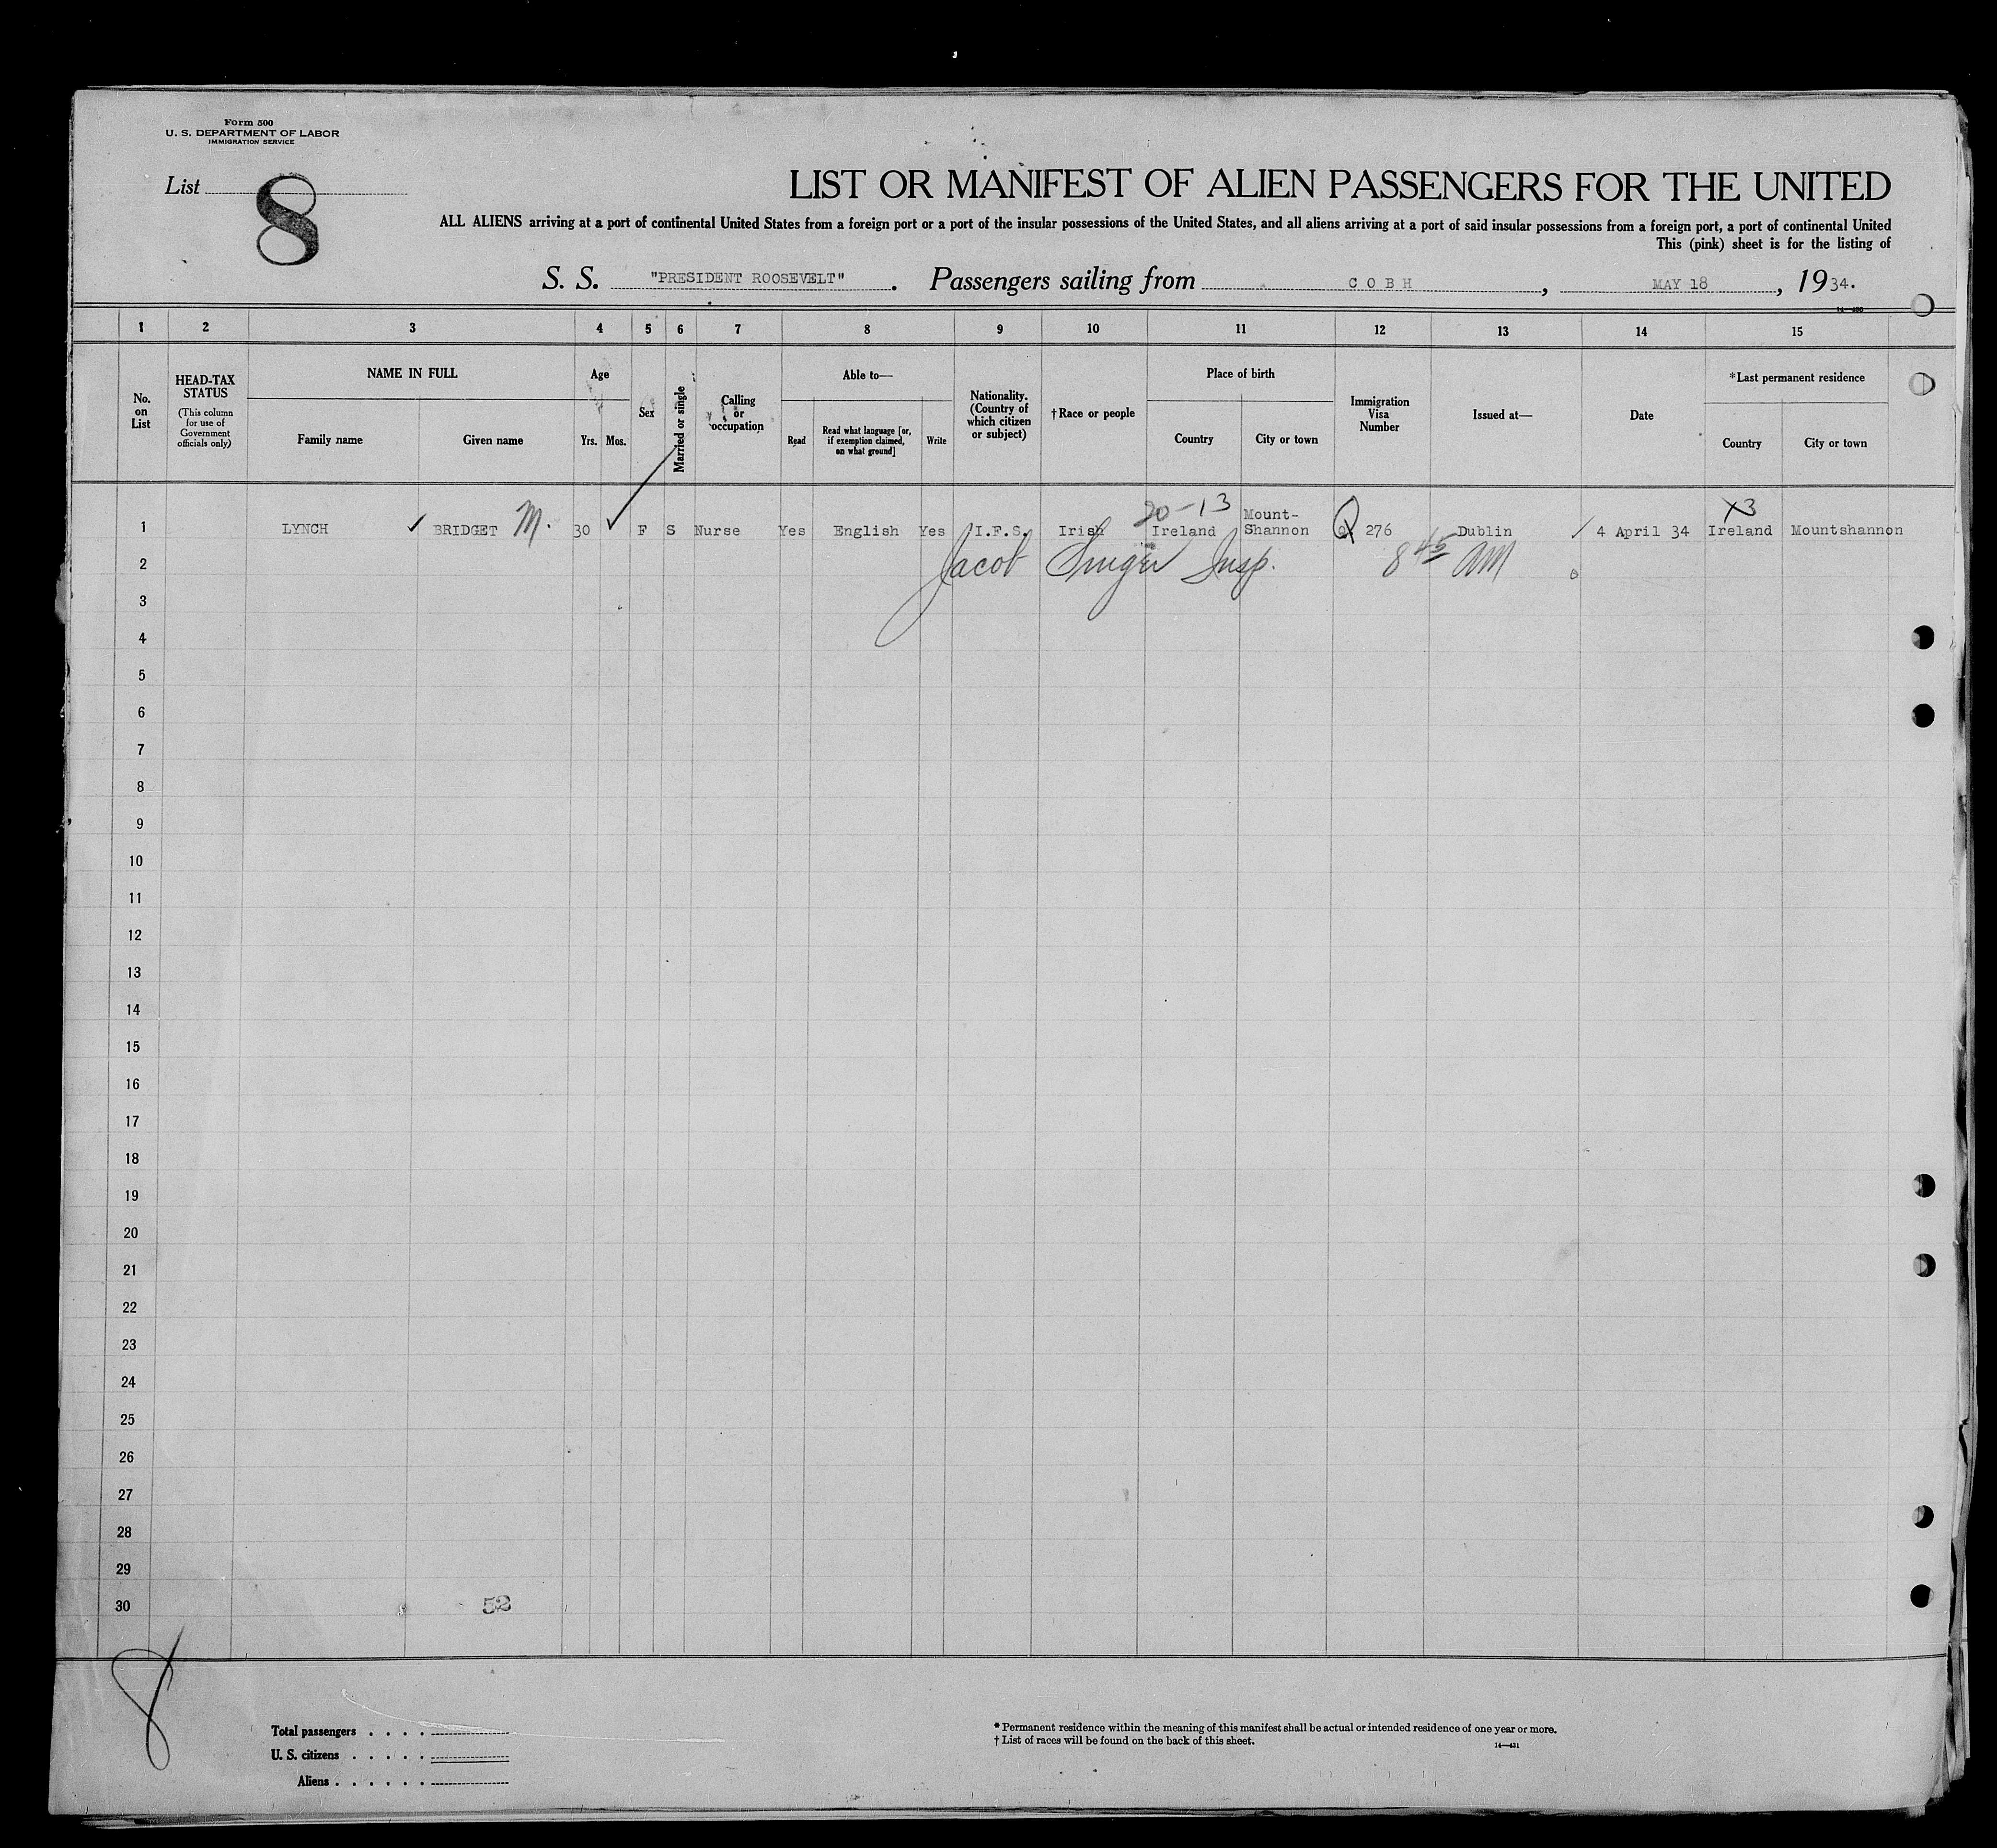 Form 500
U. S. DEPARTMENT OF LABOR
IMMIGRATION SERVICE
List 8
LIST OR MANIFEST OF ALIEN PASSENGERS FOR THE UNITED
ALL ALIENS arriving at a port of continental United States from a foreign port or a port of the insular possessions of the United States, and all aliens arriving at a port of said insular possessions from a foreign port, a port of continental United
This (pink) sheet is for the listing of
S. S. "PRESIDENT ROOSEVELT". Passengers sailing from COBH, MAY 18, 1934.
1 2 3 4 5 6 7 8 9 10 11 12 13 14 15
No. on List
HEAD-TAX STATUS
(This column for use of Government officials only)
NAME IN FULL
Family name
Given name
Age
Yrs. Mos.
Sex
Married or single
Calling or occupation
Able to—
Read
Read what language [or, if exemption claimed, on what ground]
Write
Nationality. (Country of which citizen or subject)
†Race or people
Place of birth
Country
City or town
Immigration Visa Number
Issued at—
Date
*Last permanent residence
Country
City or town
20-13
X3
1 LYNCH ✓ BRIDGET M. 30 ✓ F S Nurse Yes English Yes I.F.S. Irish Ireland Mount-Shannon Q 276 Dublin / 4 April 34 Ireland Mountshannon
2 Jacob Singer Insp. 8 45 AM
3
4
5
6
7
8
9
10
11
12
13
14
15
16
17
18
19
20
21
22
23
24
25
26
27
28
29
30
52
8
Total passengers . . . .
U. S. citizens . . . . .
Aliens . . . . . .
* Permanent residence within the meaning of this manifest shall be actual or intended residence of one year or more.
† List of races will be found on the back of this sheet.
14—431